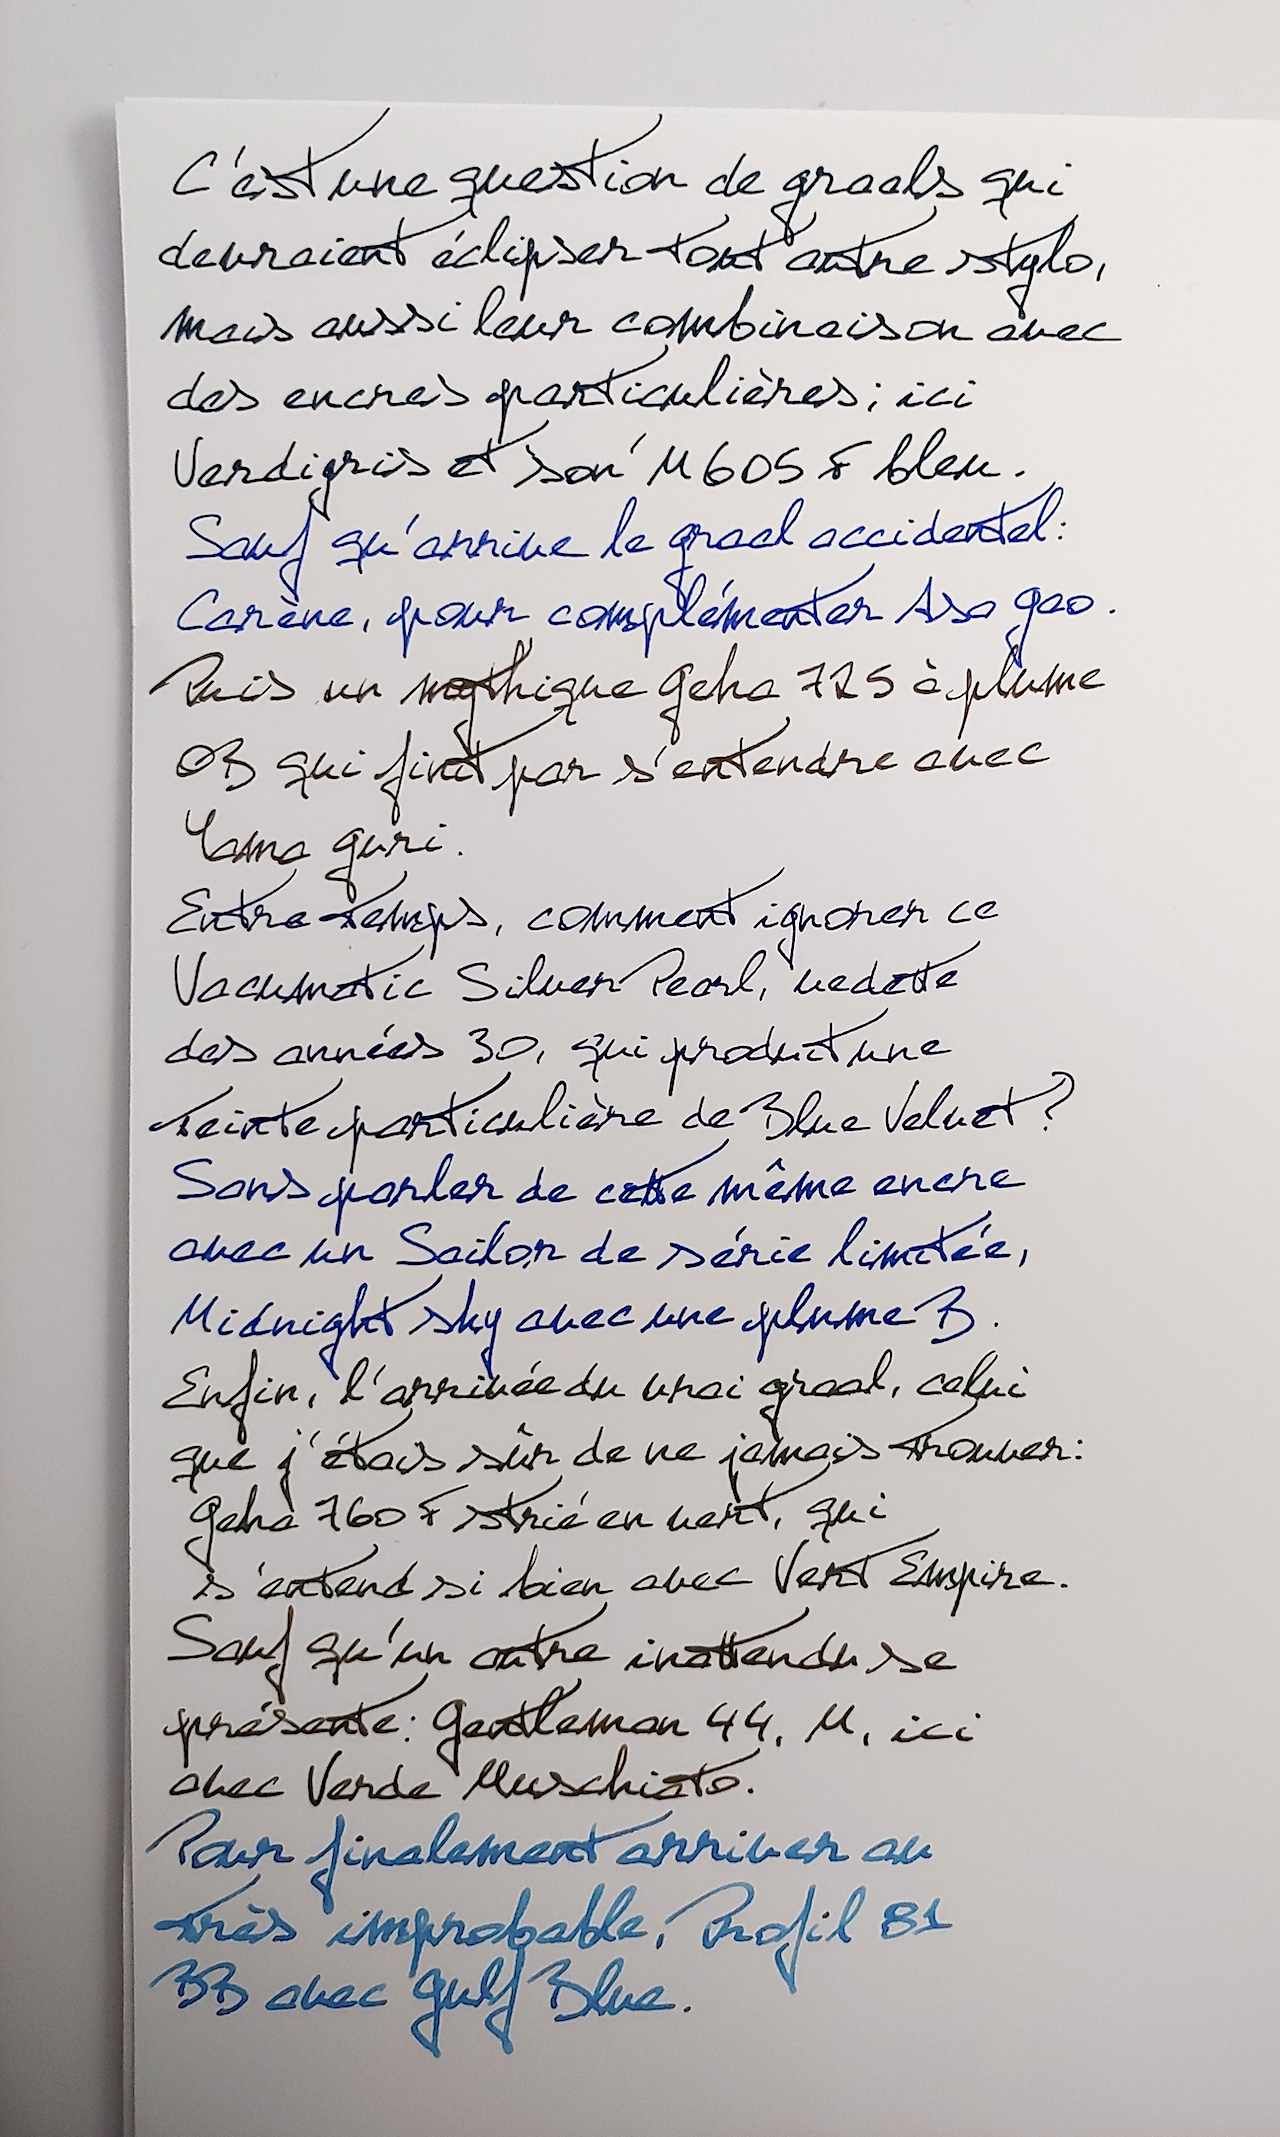 C'est une question de graals qui
devraient éclipser tout autre stylo,
mais aussi leur combinaison avec
des encres particulières; ici
Verdigris et son M605 F bleu.
Sauf qu'arrive le graal accidentel:
Carène, pour complémenter Asa gao.
Puis un mythique Geha 725 à plume
OB qui finit par s'entendre avec
Yama guri.
Entre-temps, comment ignorer ce
Vacumatic Silver Pearl, vedette
des années 30, qui produit une
teinte particulière de Blue Velvet?
Sans parler de cette même encre
avec un Sailor de série limitée,
Midnight sky avec une plume B.
Enfin, l'arrivée du vrai graal, celui
que j'étais sûr de ne jamais trouver:
Geha 760 F strié en vert, qui
s'entend si bien avec Vert Empire.
Sauf qu'un autre inattendu se
présente: Gentleman 44, M, ici
avec Verde Muschiato.
Pour finalement arriver au
très improbable, Profil 81
BB avec Gulf Blue.